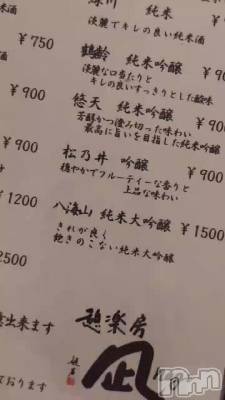 純米
淡麗でキレの良い純米酒
鶴齢 純米吟醸 ¥9
淡麗な口当たりと
キレの良いすっきりとした酸味
悠天 純米吟醸 ¥90
芳醇かつ澄み切った味わい
最高に旨いを目指した純米吟醸
松乃井 吟醸 ¥900
穏やかでフルーティーな香りと
上品な味わい
八海山 純米大吟醸 ¥1500
きれが良く
飽きのこない純米大吟醸
米酒
¥750
¥900
¥900
¥1200
2500
出来ます
ております
楽房
凪